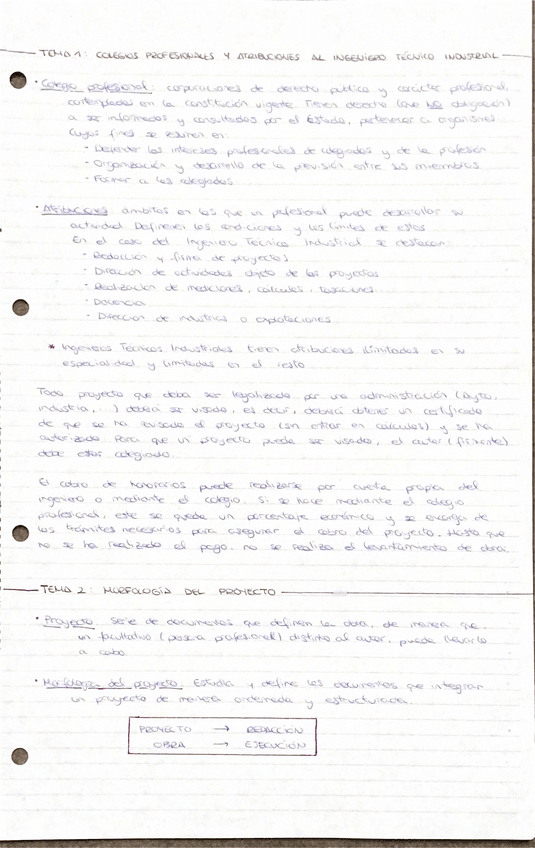 TEMA 1: COLEGIOS PROFESIONALES Y ATRIBUCIONES AL INGENIERO TÉCNICO INDUSTRIAL
· Colegio profesional: corporaciones de derecho público y carácter profesional,
contempladas en la constitución vigente. Tienen derecho (que no obligación)
a ser informados y consultados por el Estado, pertenecer a organismos
Cuyos fines se resumen en:
- Defender los intereses profesionales de colegiados y de la profesión
- Organización y desarrollo de la previsión entre sus miembros
- Formar a los colegiados
· Atribuciones: ámbitos en los que un profesional puede desarrollar su
actividad. Definen las condiciones y los límites de estos
En el caso del Ingeniero Técnico Industrial se destacan:
- Redacción y firma de proyectos
- Dirección de actividades objeto de los proyectos
- Realización de mediciones, cálculos, tasaciones...
- Docencia
- Dirección de industrias o explotaciones
* Ingenieros Técnicos Industriales tienen atribuciones ilimitadas en su
especialidad y limitadas en el resto
Todo proyecto que deba ser legalizado por una administración (Ayto,
industria, ...) deberá ser visado, es decir, deberá obtener un certificado
de que se ha revisado el proyecto (sin entrar en cálculos) y se ha
autorizado. Para que un proyecto pueda ser visado, el autor (firmante)
debe estar colegiado.
El cobro de honorarios puede realizarse por cuenta propia del
ingeniero o mediante el colegio. Si se hace mediante el colegio
profesional, este se queda un porcentaje económico y se encarga de
los trámites necesarios para asegurar el cobro del proyecto. Hasta que
no se ha realizado el pago, no se realiza el levantamiento de obra.
TEMA 2: MORFOLOGÍA DEL PROYECTO
· Proyecto: Serie de documentos que definen la obra, de manera que
un facultativo (posea profesional) distinto al autor, pueda llevarlo
a cabo.
· Morfología del proyecto: Estudia y define los documentos que integran
un proyecto de manera ordenada y estructurada.
PROYECTO → REDACCIÓN
OBRA → EJECUCIÓN